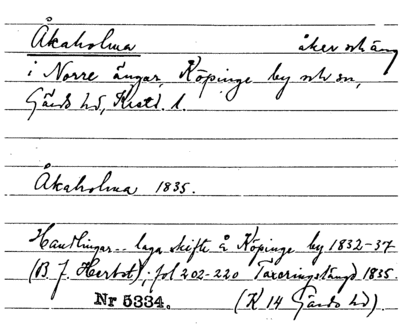 Åkaholma åker och äng
i Norre ängar, Köpinge by och sn,
Gärds hd, Krist. l.
Åkaholma 1835.
Handlingar.. laga skifte å Köpinge by 1832-37
(B. J. Herbst); fol 202-220 Taxeringslängd 1835.
Nr 5334. (K 14 Gärds hd).